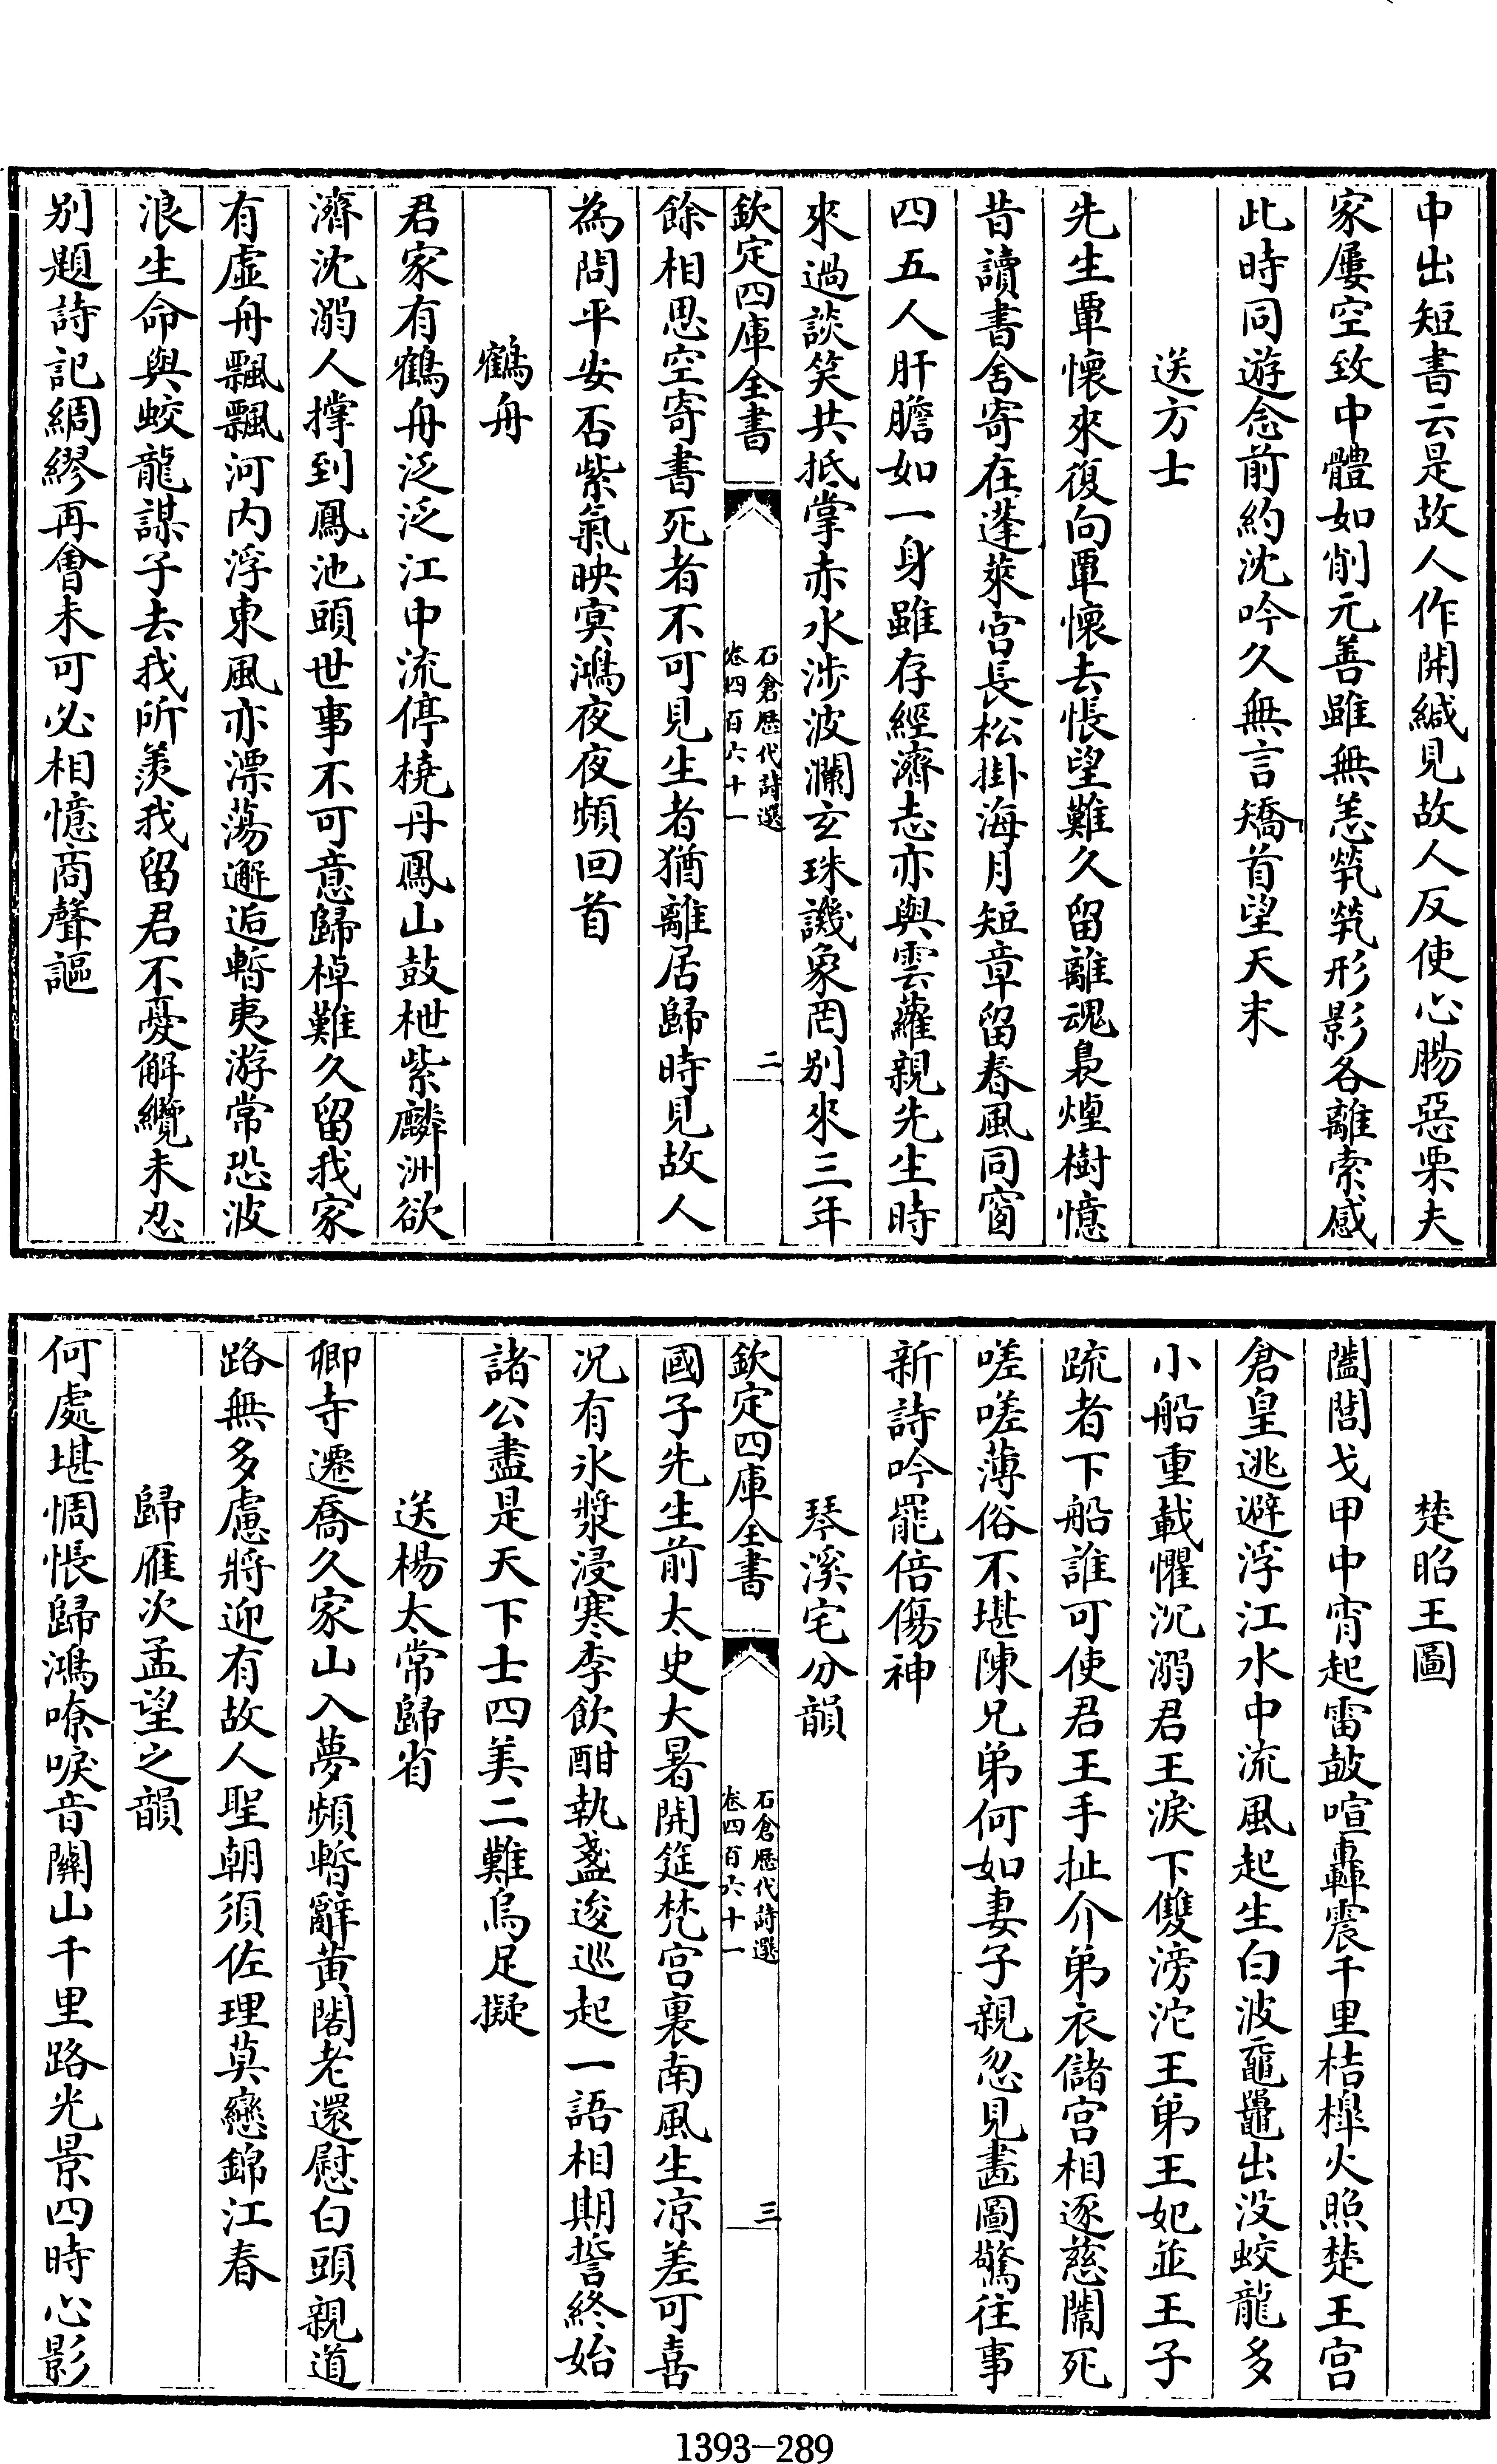 中出短書云是故人作開緘見故人反使心腸惡栗夫
家屢空致中體如削元善雖無恙煢煢形影各離索感
此時同遊念前約沈吟久無言矯首望天末
送方士
先生覃懷來復向覃懷去悵望難久留離魂裊煙樹憶
昔讀書舍寄在蓬萊宮長松掛海月短章留春風同窗
四五人肝膽如一身雖存經濟志亦與雲蘿親先生時
來過談笑共抵掌赤水涉波瀾玄珠譏象罔别來三年
欽定四庫全書
石倉歷代詩選
卷四百六十一
二
餘相思空寄書死者不可見生者猶離居歸時見故人
為問平安否紫氣映冥鴻夜夜頻回首
鶴舟
君家有鶴舟泛泛江中流停橈丹鳳山鼓枻紫麟洲欲
濟沈溺人撑到鳳池頭世事不可意歸棹難久留我家
有虛舟飄飄河内浮東風亦漂蕩邂逅暫夷游常恐波
浪生命與蛟龍謀子去我所羨我留君不憂解纜未忍
别題詩記綢繆再會未可必相憶商聲謳
楚昭王圖
闔閭戈甲中宵起雷鼓喧轟震千里桔槔火照楚王宫
倉皇逃避浮江水中流風起生白波黿鼉出没蛟龍多
小船重載懼沉溺君王淚下雙滂沱王弟王妃並王子
疏者下船誰可使君王手扯介弟衣儲宫相逐慈闈死
嗟嗟薄俗不堪陳兄弟何如妻子親忽見畫圖驚往事
新詩吟罷倍傷神
琴溪宅分韻
欽定四庫全書
石倉歷代詩選
卷四百六十一
三
國子先生前太史大暑開筵梵宫裏南風生凉差可喜
况有氷漿浸寒李飲酣執盞逡巡起一語相期誓終始
諸公盡是天下士四美二難烏足擬
送楊太常歸省
卿寺遷喬久家山入夢頻暫辭黄閣老還慰白頭親道
路無多慮將迎有故人聖朝須佐理莫戀錦江春
歸雁次孟望之韻
何處堪惆悵歸鴻嘹唳音關山千里路光景四時心影
1393-289